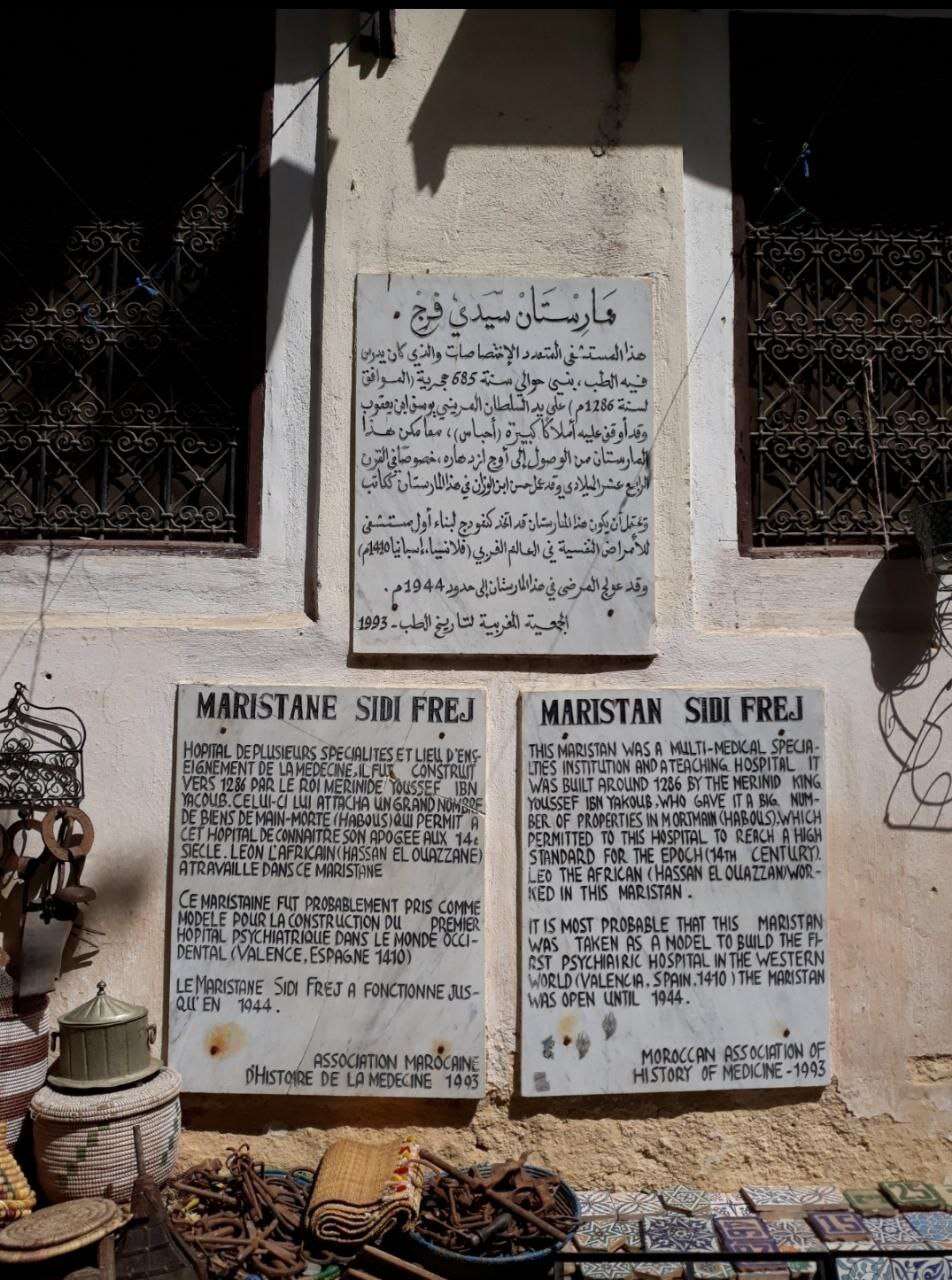 مَارِسْتَانْ سِيّدي فرج
هذا المستشفى المتعدد الإختصاصات والذي كان يدرس
فيه الطب، بني حوالي سنة 685 هجرية (الموافق
لسنة 1286م) على يد السلطان المريني يوسف ابن يعقوب
وقد أوقف عليه أملاكا كبيرة (أحباس)، مما مكن هذا
المارستان من الوصول إلى أوج ازدهاره، خصوصا في القرن
الرابع عشر الميلادي وقد عمل حسن ابن الوزان في هذا المارستان ككاتب
ويحتمل أن يكون هذا المارستان قد اتخذ كنموذج لبناء أول مستشفى
للأمراض النفسية في العالم الغربي (فلانسيا، إسبانيا 1410م)
وقد عولج المرضى في هذا المارستان إلى حدود 1944م.
الجمعية المغربية لتاريخ الطب - 1993
MARISTANE SIDI FREJ
HOPITAL DE PLUSIEURS SPECIALITES ET LIEU D'ENS-
EIGNEMENT DE LA MEDECINE, IL FUT CONSTRUIT
VERS 1286 PAR LE ROI MERINIDE YOUSSEF IBN
YACOUB. CELUI-CI LUI ATTACHA UN GRAND NOMBRE
DE BIENS DE MAIN-MORTE (HABOUS) QUI PERMIT A
CET HOPITAL DE CONNAITRE SON APOGEE AUX 14e
SIECLE. LEON L'AFRICAIN (HASSAN EL OUAZZANE)
A TRAVAILLE DANS CE MARISTANE
CE MARISTAINE FUT PROBABLEMENT PRIS COMME
MODELE POUR LA CONSTRUCTION DU PREMIER
HOPITAL PSYCHIATRIQUE DANS LE MONDE OCCI-
DENTAL (VALENCE, ESPAGNE 1410)
LE MARISTANE SIDI FREJ A FONCTIONNE JUS-
QU'EN 1944.
ASSOCIATION MAROCAINE
D'HISTOIRE DE LA MEDECINE 1993
MARISTAN SIDI FREJ
THIS MARISTAN WAS A MULTI-MEDICAL SPECIA-
LTIES INSTITUTION AND A TEACHING HOSPITAL IT
WAS BUILT AROUND 1286 BY THE MERINID KING
YOUSSEF IBN YAKOUB. WHO GAVE IT A BIG NUM-
BER OF PROPERTIES IN MORTMAIN (HABOUS). WHICH
PERMITTED TO THIS HOSPITAL TO REACH A HIGH
STANDARD FOR THE EPOCH (14TH CENTURY).
LEO THE AFRICAN (HASSAN EL OUAZZAN) WOR-
KED IN THIS MARISTAN.
IT IS MOST PROBABLE THAT THIS MARISTAN
WAS TAKEN AS A MODEL TO BUILD THE FI-
RST PSYCHIAIRIC HOSPITAL IN THE WESTERN
WORLD (VALENCIA. SPAIN. 1410) THE MARISTAN
WAS OPEN UNTIL 1944.
MOROCCAN ASSOCIATION OF
HISTORY OF MEDICINE - 1993
25
15